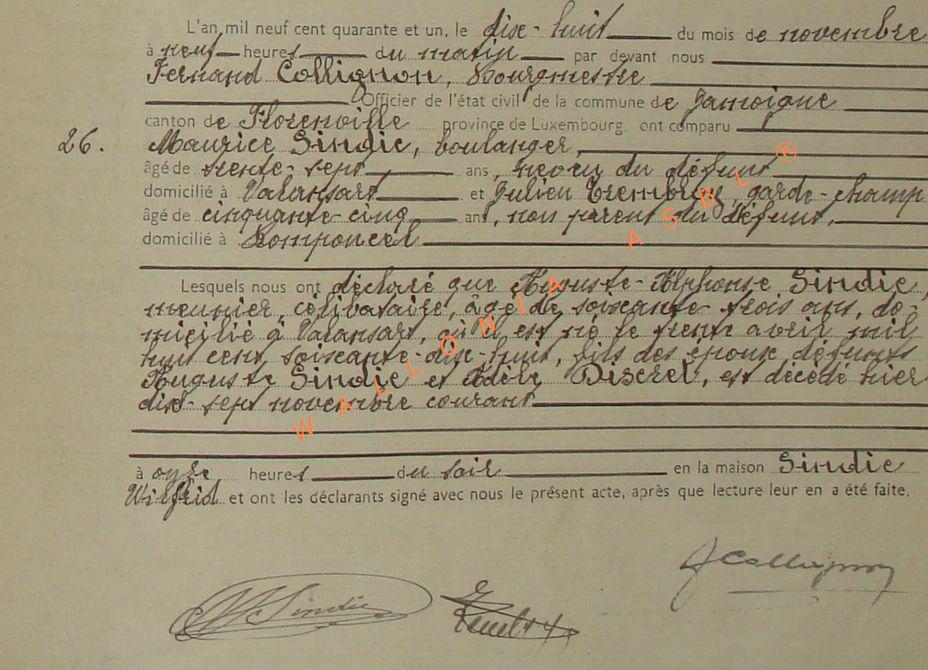 L'an mil neuf cent quarante et un, le dix-huit du mois de novembre
à neuf heures du matin par devant nous
Fernand Collignon, Bourgmestre
Officier de l'état civil de la commune de Jamoigne
canton de Florenville province de Luxembourg, ont comparu
26. Maurice Sindic, boulanger,
âgé de trente-sept ans, neveu du défunt
domicilié à Valansart et Julien garde-champ
âgé de cinquante-cinq ans, non parent du défunt,
domicilié à Romponcel
Lesquels nous ont déclaré que Auguste-Alphonse Sindic,
meunier, célibataire, âgé de soixante-trois ans, do-
micilié à Valansart, où il est né le trente avril mil
huit cent soixante-dix-huit, fils des époux défunts
Auguste Sindic et Adèle Discret, est décédé hier
dix-sept novembre courant
à onze heures du soir en la maison Sindic
Wilfrid et ont les déclarants signé avec nous le présent acte, après que lecture leur en a été faite.
WALLONIA ASBL ®
M. Sindic
J Collignon